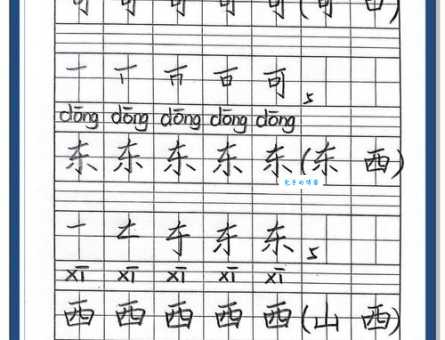 可 可 可 可 可 (可 口)
一 丅 𠮛 可 可 5
dōng dōng dōng dōng dōng
东 东 东 东 东 (东 西)
一 𠂇 车 东 东 5
xī xī xī xī xī
西 西 西 西 西 (山 西)